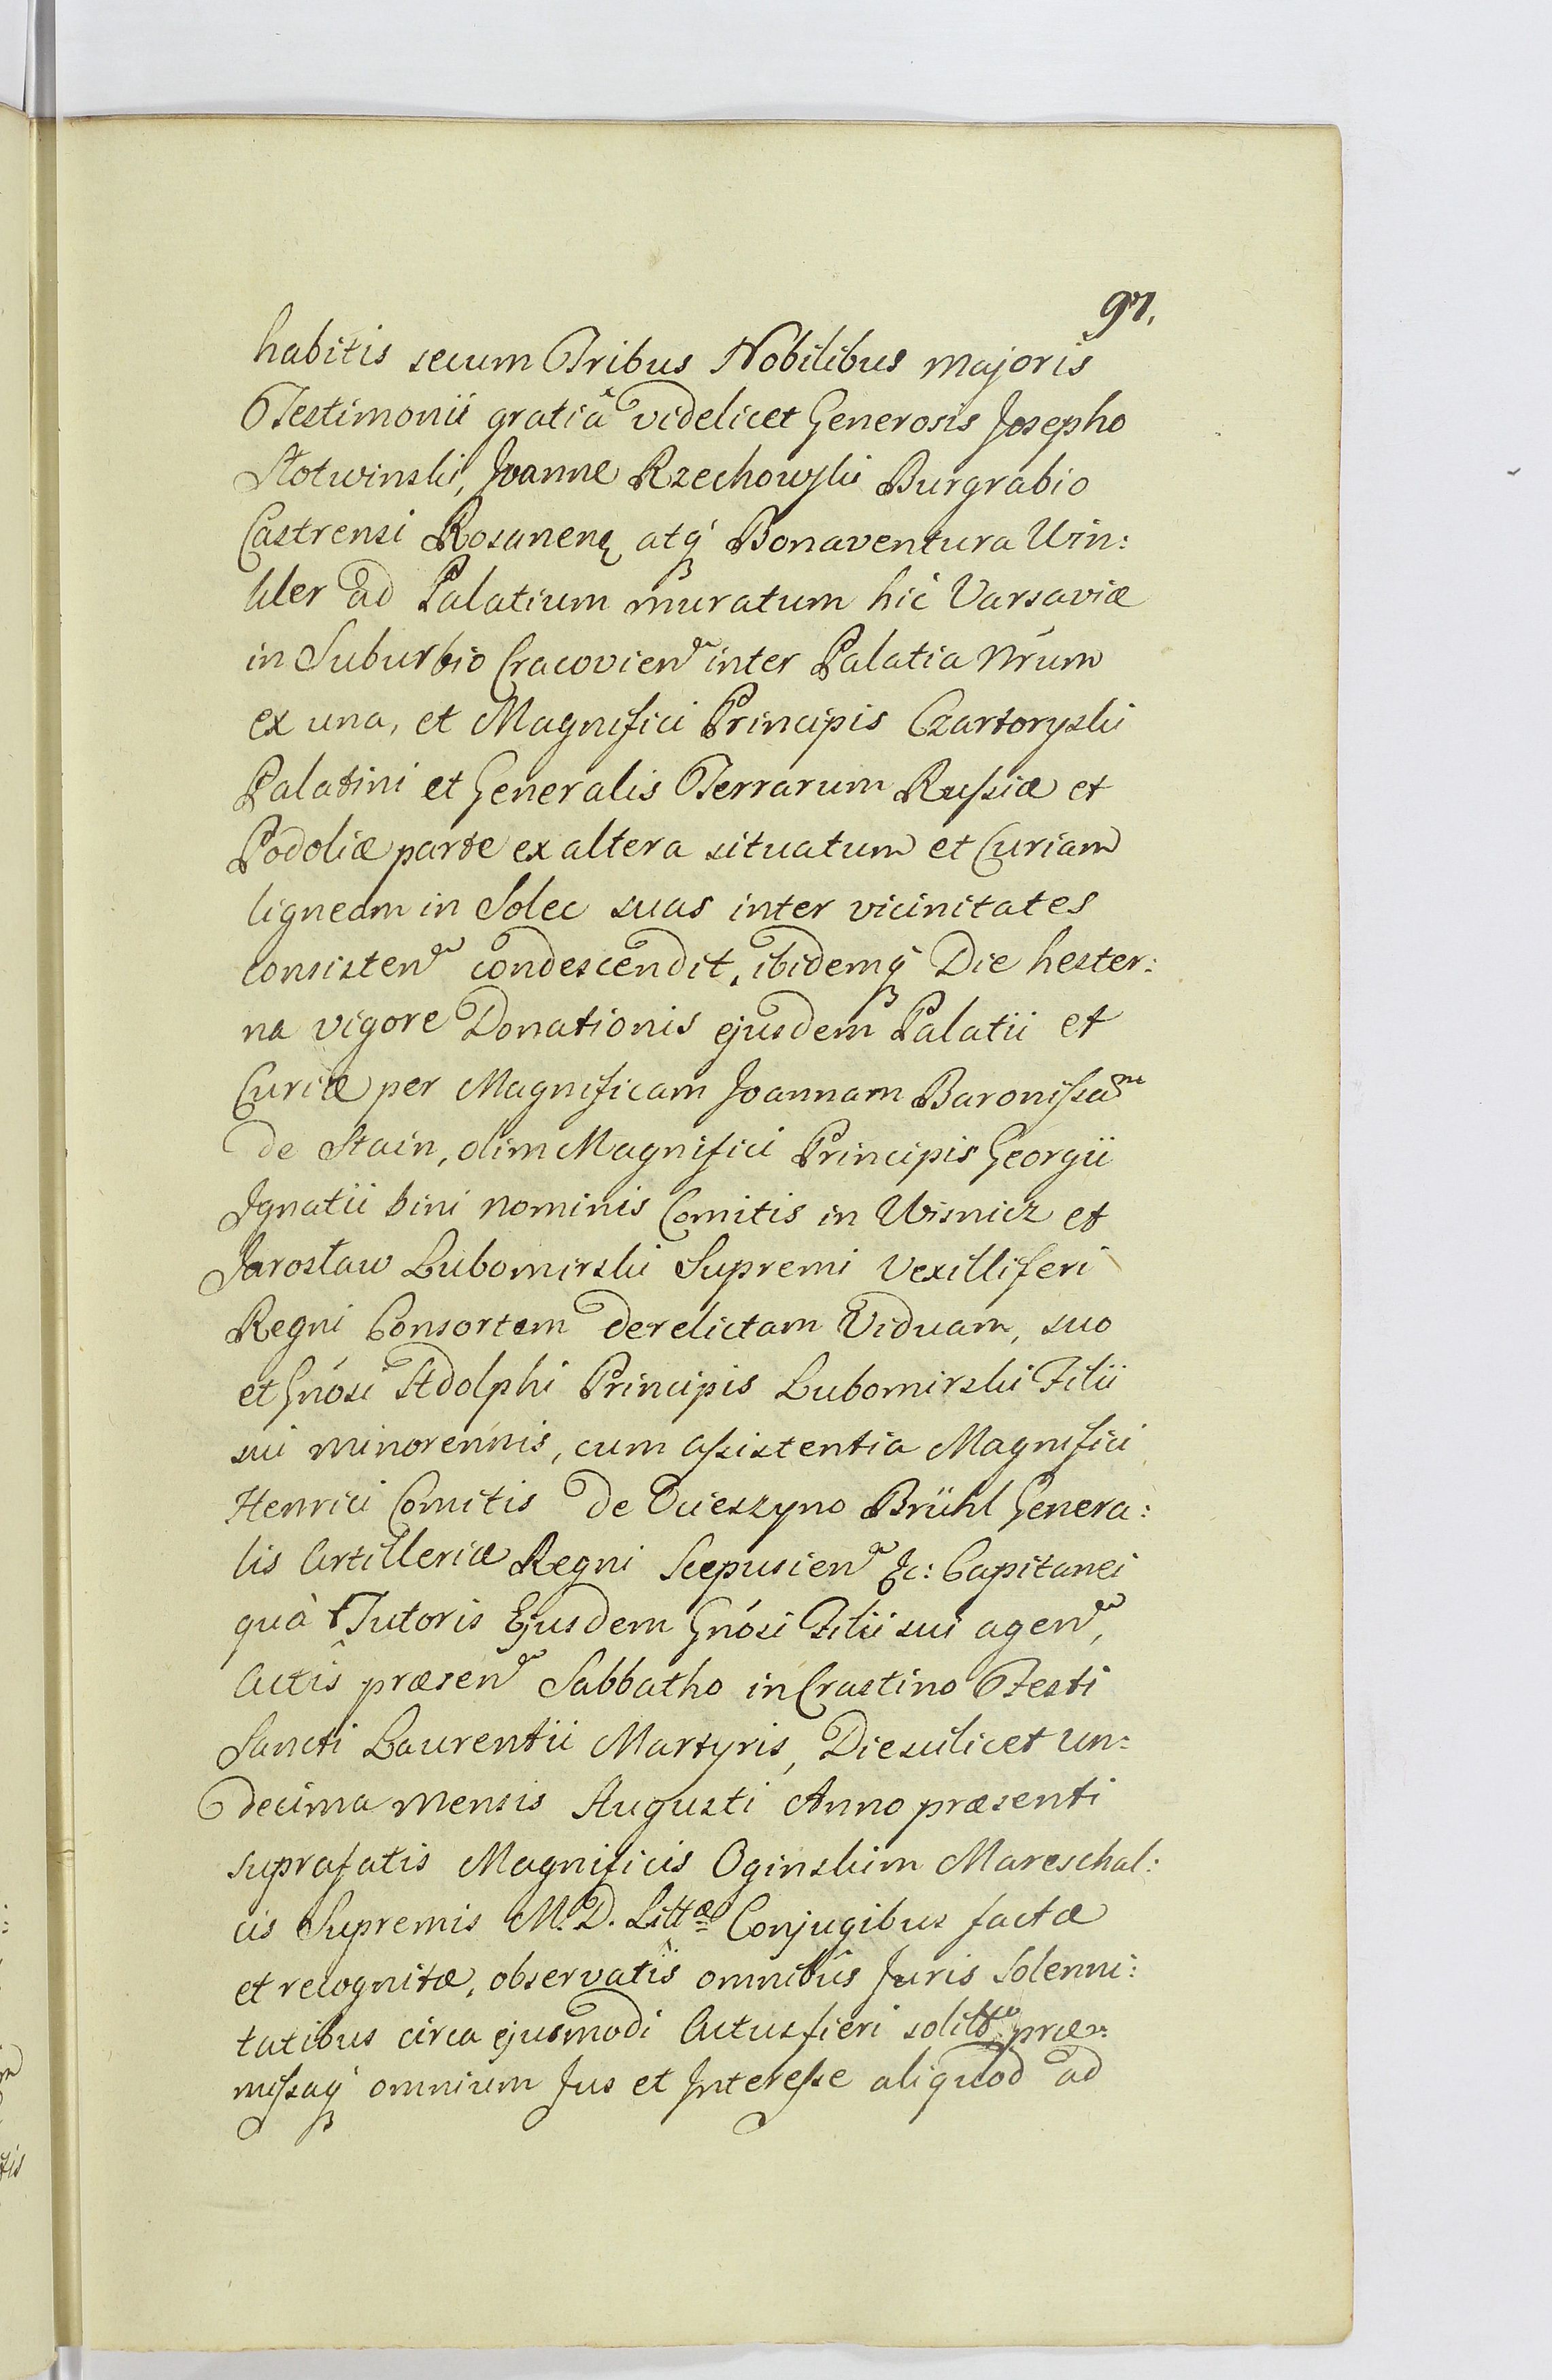 97.
habitis secum Tribus Nobilibus majoris
Testimonii gratiâ videlicet Generosis Josepho
Słotwinski, Joanne Rzechowski Burgrabio
Castrensi Rosanen atq Bonaventura Win:
kler ad Palatium muratum hic Varsaviæ
in Suburbio Cracovien inter Palatia Nrum
ex una, et Magnifici Principis Czartoryski
Palatini et Generalis Terrarum Russiæ et
Podoliæ parte ex altera situatum et Curiam
ligneam in Solec suas inter vicinitates
consisten condescendit, ibidemq Die hester:
na vigore Donationis ejusdem Palatii et
Curiæ per Magnificam Joannam Baronissam
de Stain, olim Magnifici Principis Georgii
Ignatii bini nominis Comitis in Wisnicz et
Jarosław Lubomirski Supremi Vexilliferi
Regni Consortem derelictam Viduam, suo
et Gnósi Adolphi Principis Lubomirski Filii
sui minorennis, cum assistentia Magnifici
Henrici Comitis de Ocieszyno Brühl Genera:
lis Artilleriæ Regni Scepusien &c: Capitanei
quà Tutoris Ejusdem Gnósi Filii sui agen,
Actis præsen Sabbatho in Crastino Festi
Sancti Laurentii Martyris, Die scilicet un:
decima mensis Augusti Anno præsenti
suprafatis Magnificis Oginskim Mareschal:
cis Supremis M. D. Littæ Conjugibus factæ
et recognitæ, observatis omnibûs Juris Solenni:
tatibus circa ejusmodi Actus fieri solit præ:
missaq omnium Jus et Interesse aliquod ad